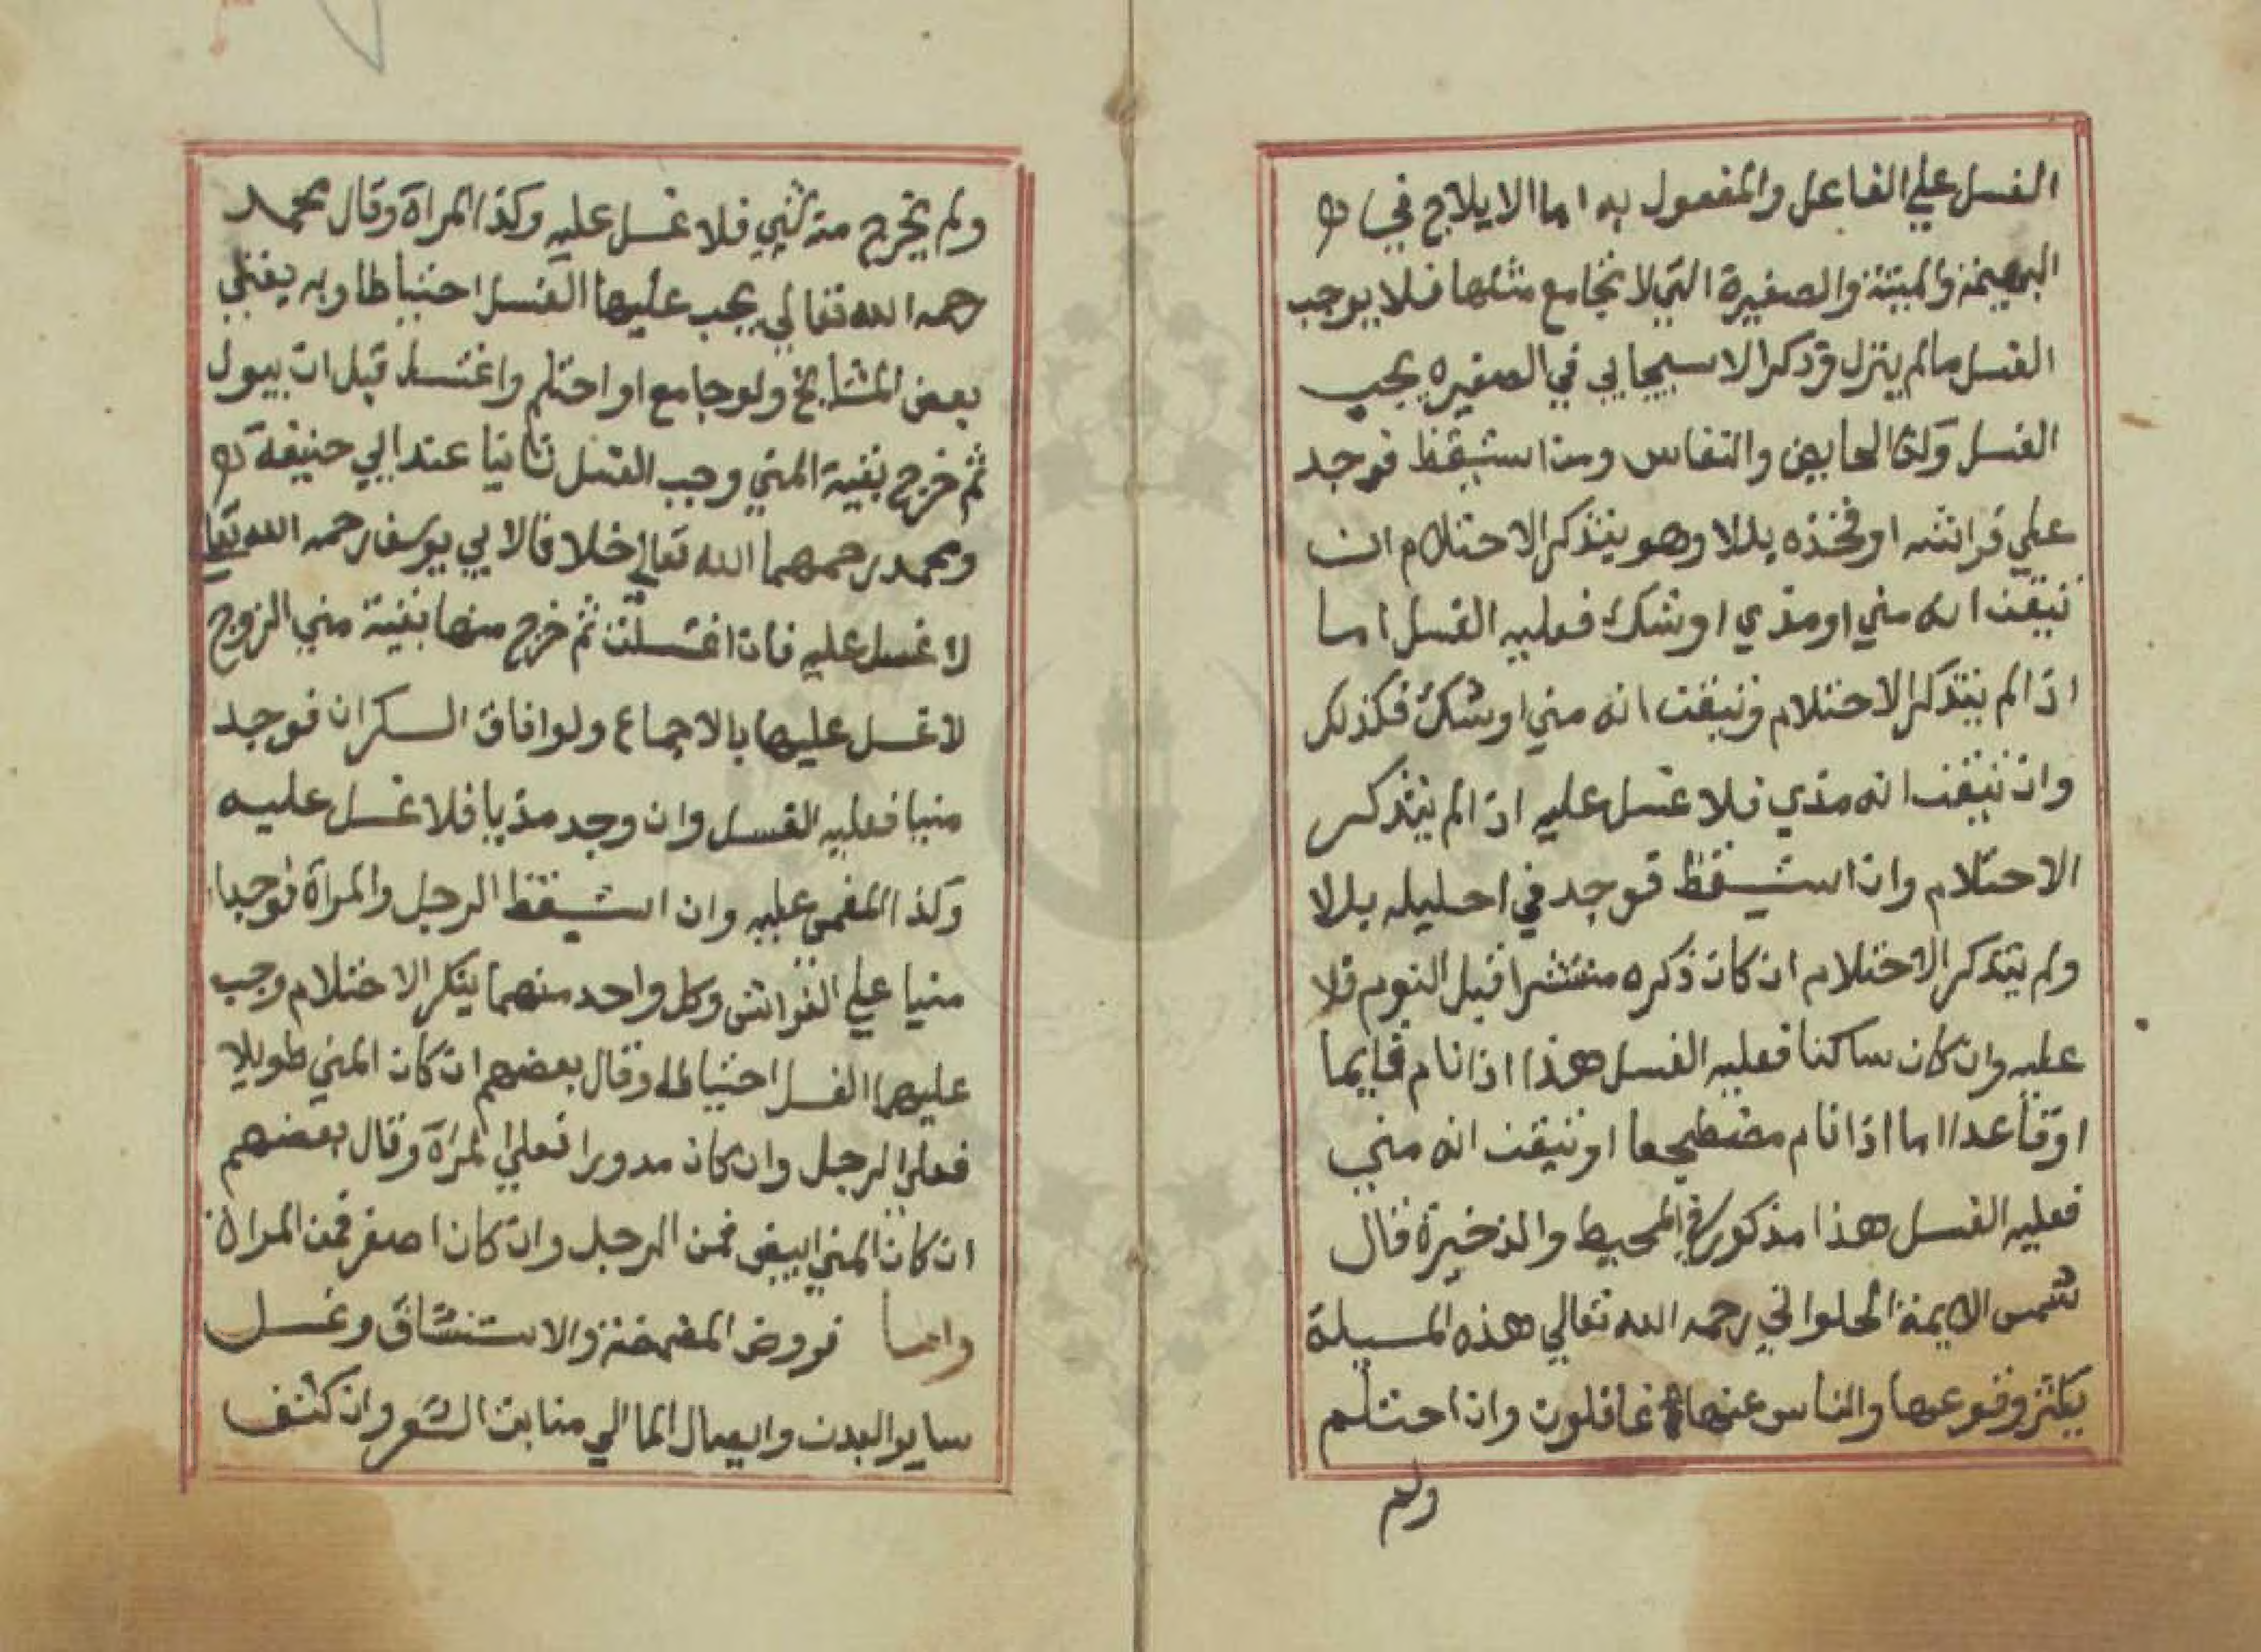 الغسل علي الفاعل والمفعول به اما الايلاج في
البهيمة والميتة والصغيرة التي لا تجامع مثلها فلا يوجب
الغسل مالم ينزل وذكر الاسبيجابي في الصغيره يجب
الغسل وكذا الحايض والنفاس ومن استيقظ فوجد
علي فراشه او فخذه بللا وهو يتذكر الاحتلام ان
تيقن انه مني او مذي او شك فعليه الغسل اما
اذا لم يتذكر الاحتلام وتيقن انه مني او شك فكذلك
وان تيقن انه مذي فلا غسل عليه اذا لم يتذكر
الاحتلام وان استيقظ فوجد في احليله بللا
ولم يتذكر الاحتلام ان كان ذكره منتشرا قبل النوم فلا
عليه وان كان ساكنا فعليه الغسل هذا اذا نام قايما
او قاعدا اما اذا نام مضطجعا او تيقن انه مني
فعليه الغسل هذا مذكور في المحيط والذخيرة قال
شمس الايمة الحلواني رحمه الله تعالي هذه المسيلة
يكثر وقوعها والناس عنها غافلون وان احتلم
ولم
ولم يخرج منه شي فلا غسل عليه وكذا المراة وقال محمد
رحمه الله تعالي يجب عليها الغسل احتياطا وبه يفتي
بعض المشايخ ولو جامع او احتلم واغتسل قبل ان يبول
ثم خرج بقية المني وجب الغسل ثانيا عند ابي حنيفة
ومحمد رحمهما الله تعالي خلافا لابي يوسف رحمه الله تعالي
لا غسل عليه فان اغتسلت ثم خرج منها بقية مني الزوج
لا غسل عليها بالاجماع ولو افاق السكران فوجد
منيا فعليه الغسل وان وجد مذيا فلا غسل عليه
وكذا المغمى عليه وان استيقظ الرجل والمراة فوجدا
منيا علي الفراش وكل واحد منهما ينكر الاحتلام وجب
عليهما الغسل احتياطا وقال بعضهم ان كان المني طويلا
فعلي الرجل وان كان مدورا فعلي المراة وقال بعضهم
ان كان المني ابيض فمن الرجل وان كان اصفر فمن المراة
واما فروض المضمضة والاستنشاق وغسل
ساير البدن وايصال الما الي منابت الشعر وان كثف